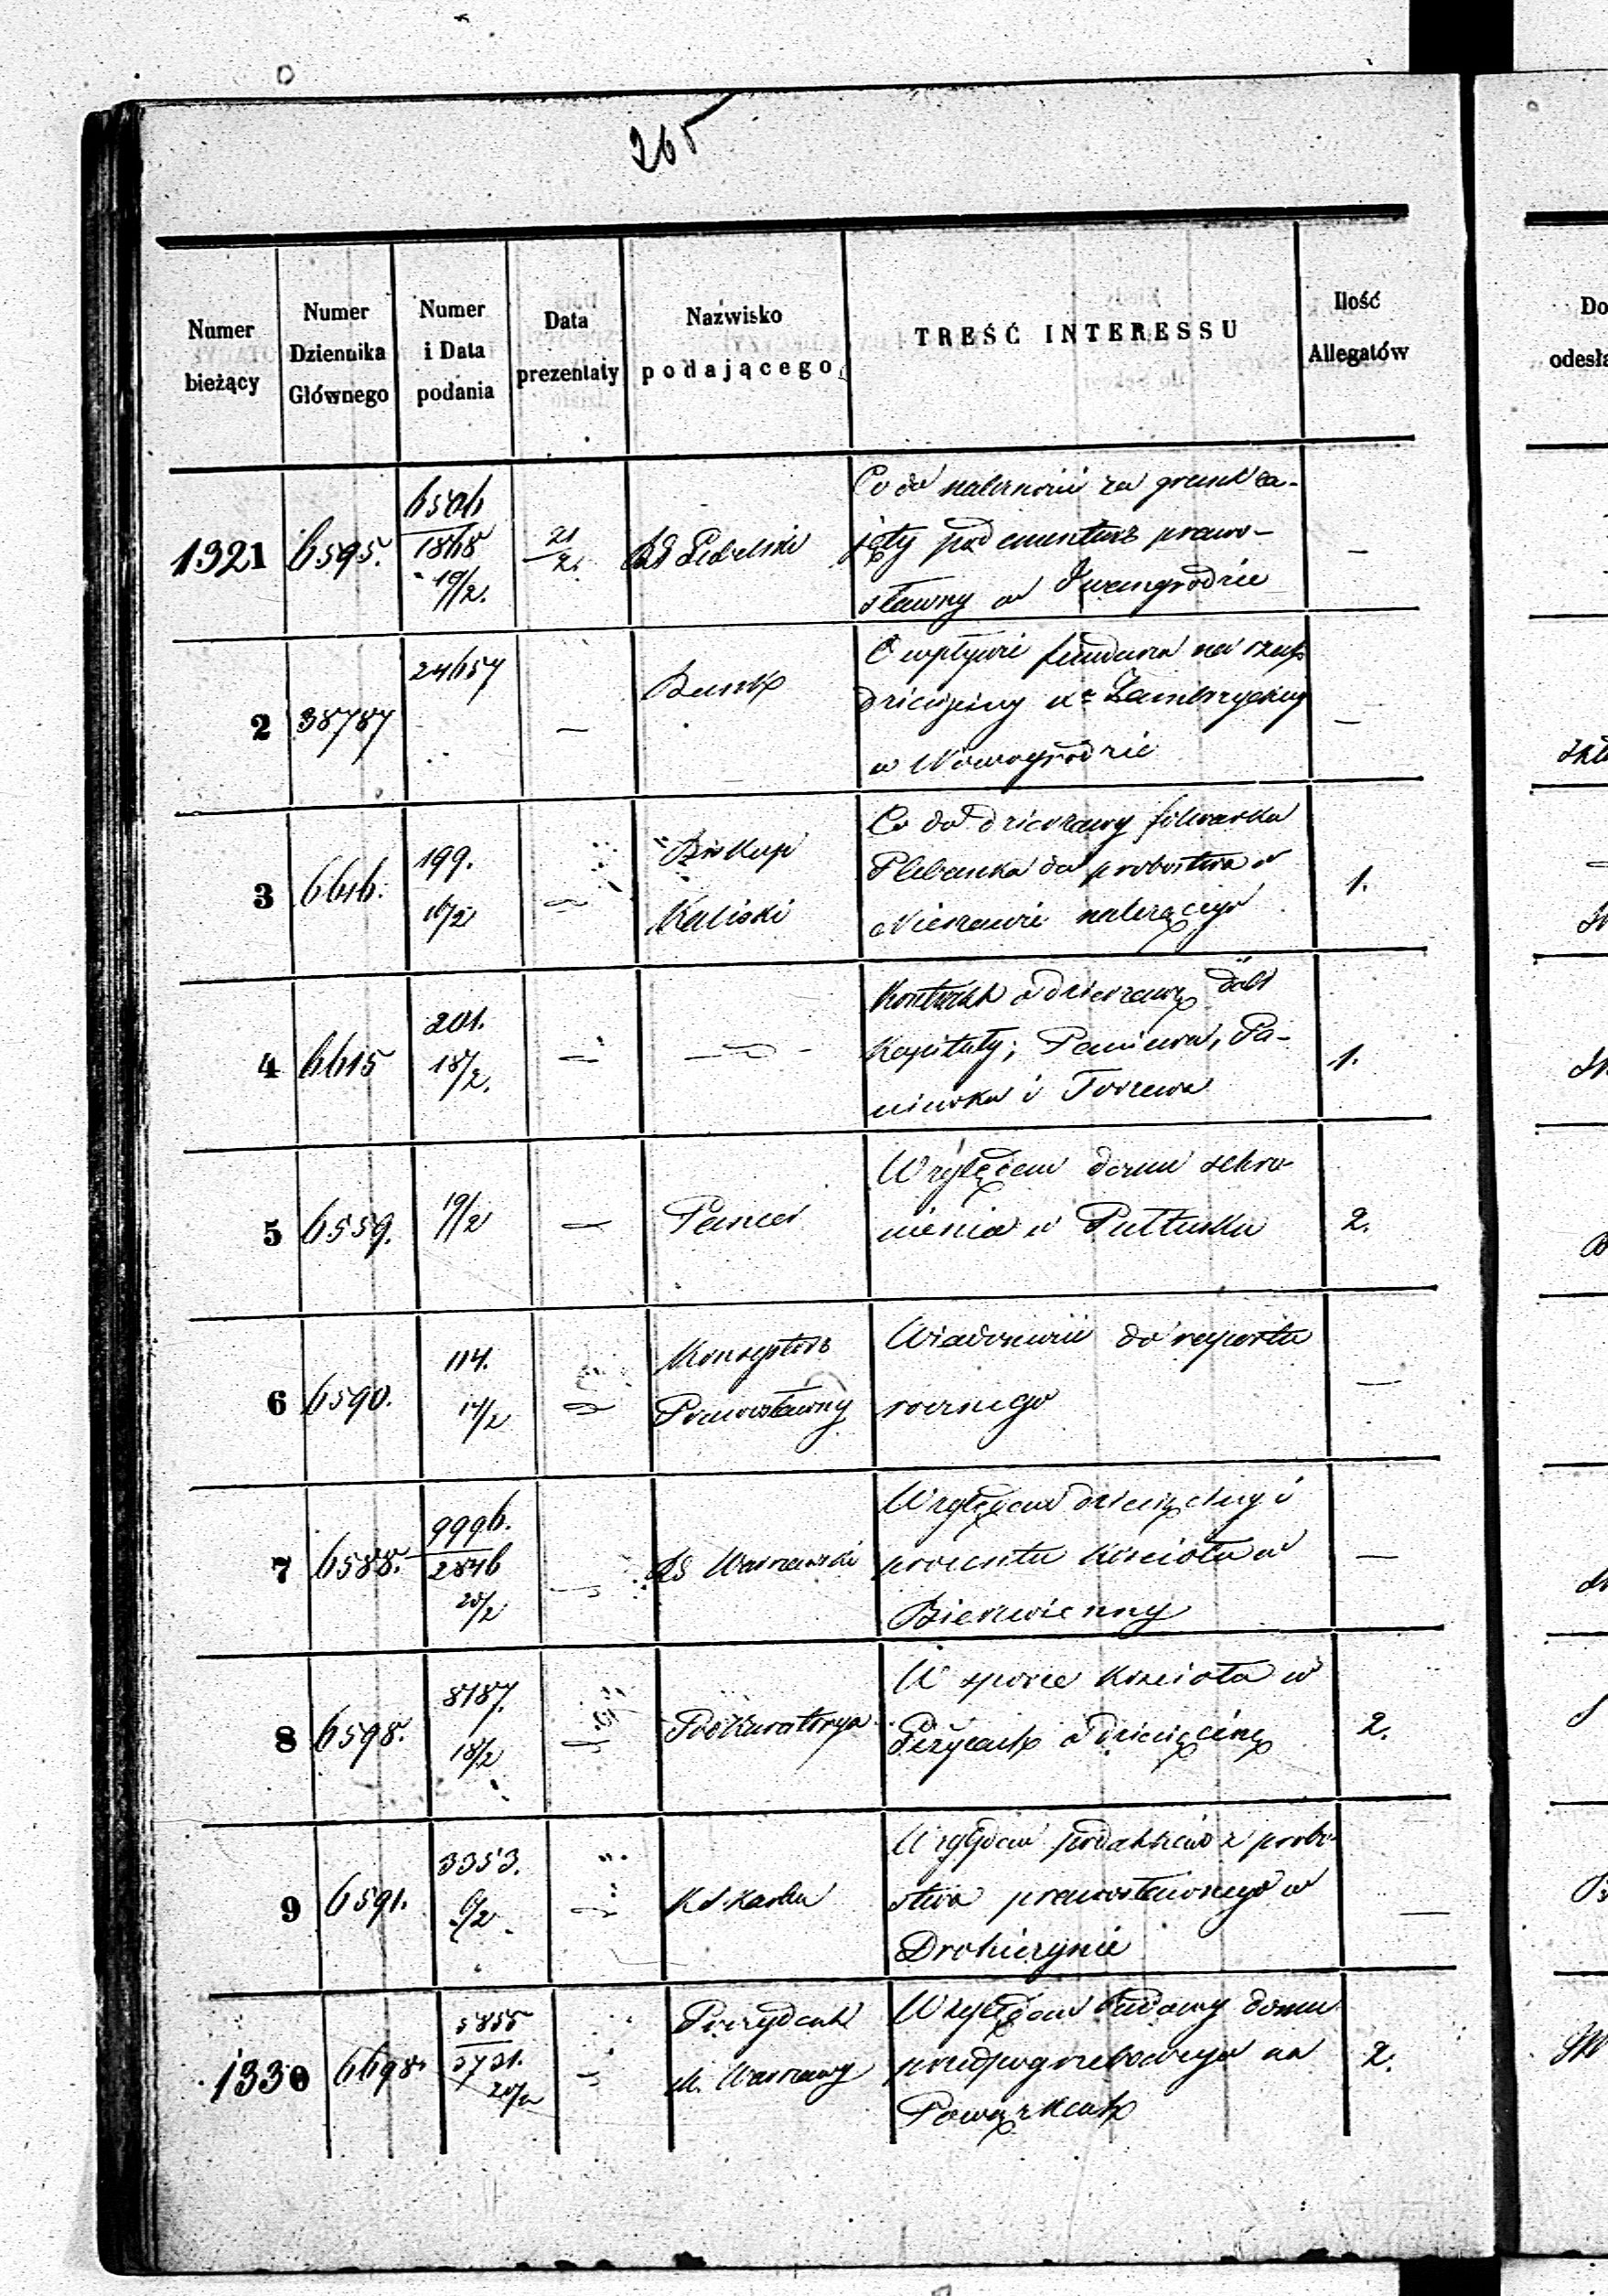 265
Numer bieżący
Numer Dziennika Głównego
Numer i Data podania
Data prezentaty
Nazwisko podającego
TREŚĆ INTERESSU
Ilość Allegatów
Do
odesła
1321 6595. 6506 1868 19/2. 21/2.
Co do należności za grunt za-
jęty pod cmentarz prawo-
sławny w Iwangrodzie
—
2 38787 24657 — Bank
O wpływie funduszu na rzecz
dziesięciny
w Nowogrodzie
—
3 199. 16/2 Biskup
Kaliski
Co do dzierzawy folwarku
Plebanka do probostwa w
Nieszawie należącego
1.
4 6615 201. 18/2.
Kontrakt o dzierzawę dóbr
Kapituły; Paniewa, Pa-
niewka i Torzewa
1.
5 6559. 19/2 — Pancer
Względem domu schro-
nienia w Pułtusku
2.
6 6590. 114. 14/2 Konsystorz
Prawosławny
Wiadomości do raportu
rocznego
—
7 6588. 9996. 2846 20/2 RG Warszawski
Względem dziesięciny i
procentu Kościoła w
Bierzwienny
—
8 6598. 8187. 18/2 Prokuratorya
W sporze Kościoła w
o dziesięcinę
2.
9 6591. 3353. 6/2 K S Karbu
Względem podatków z probo-
stwa prawosławnego w
Drohiczynie
—
1330 6698. 5855 3731. 20/2 Prezydent
M. Warszawy
Względem budowy domu
przedpogrzebowego na
Powązkach
2.